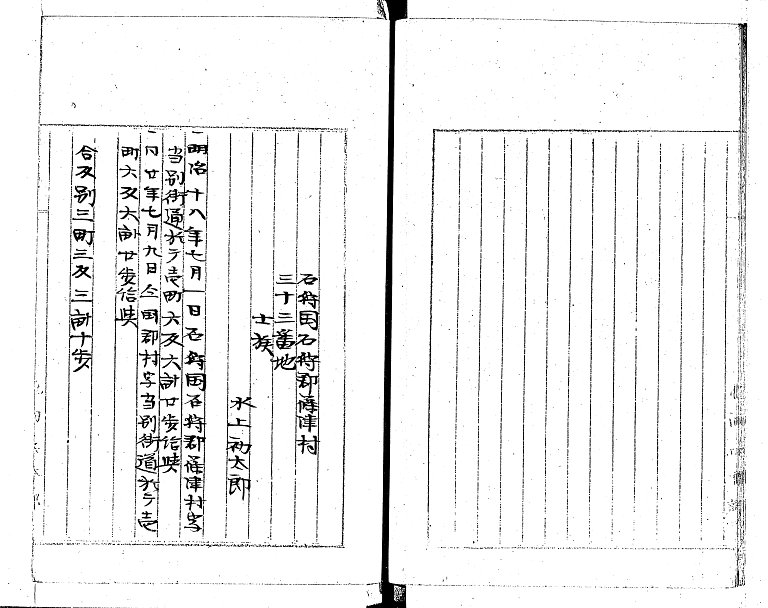 石狩国石狩郡篠津村
三十三番地
士族
水上初太郎
一明治十八年七月一日石狩国石狩郡篠津村字
当別街道於テ壱町六反六畝廿歩給与
一同廿年七月九日仝国郡村字当別街道於テ壱
町六反六畝廿歩給与
合反別三町三反三畝十歩